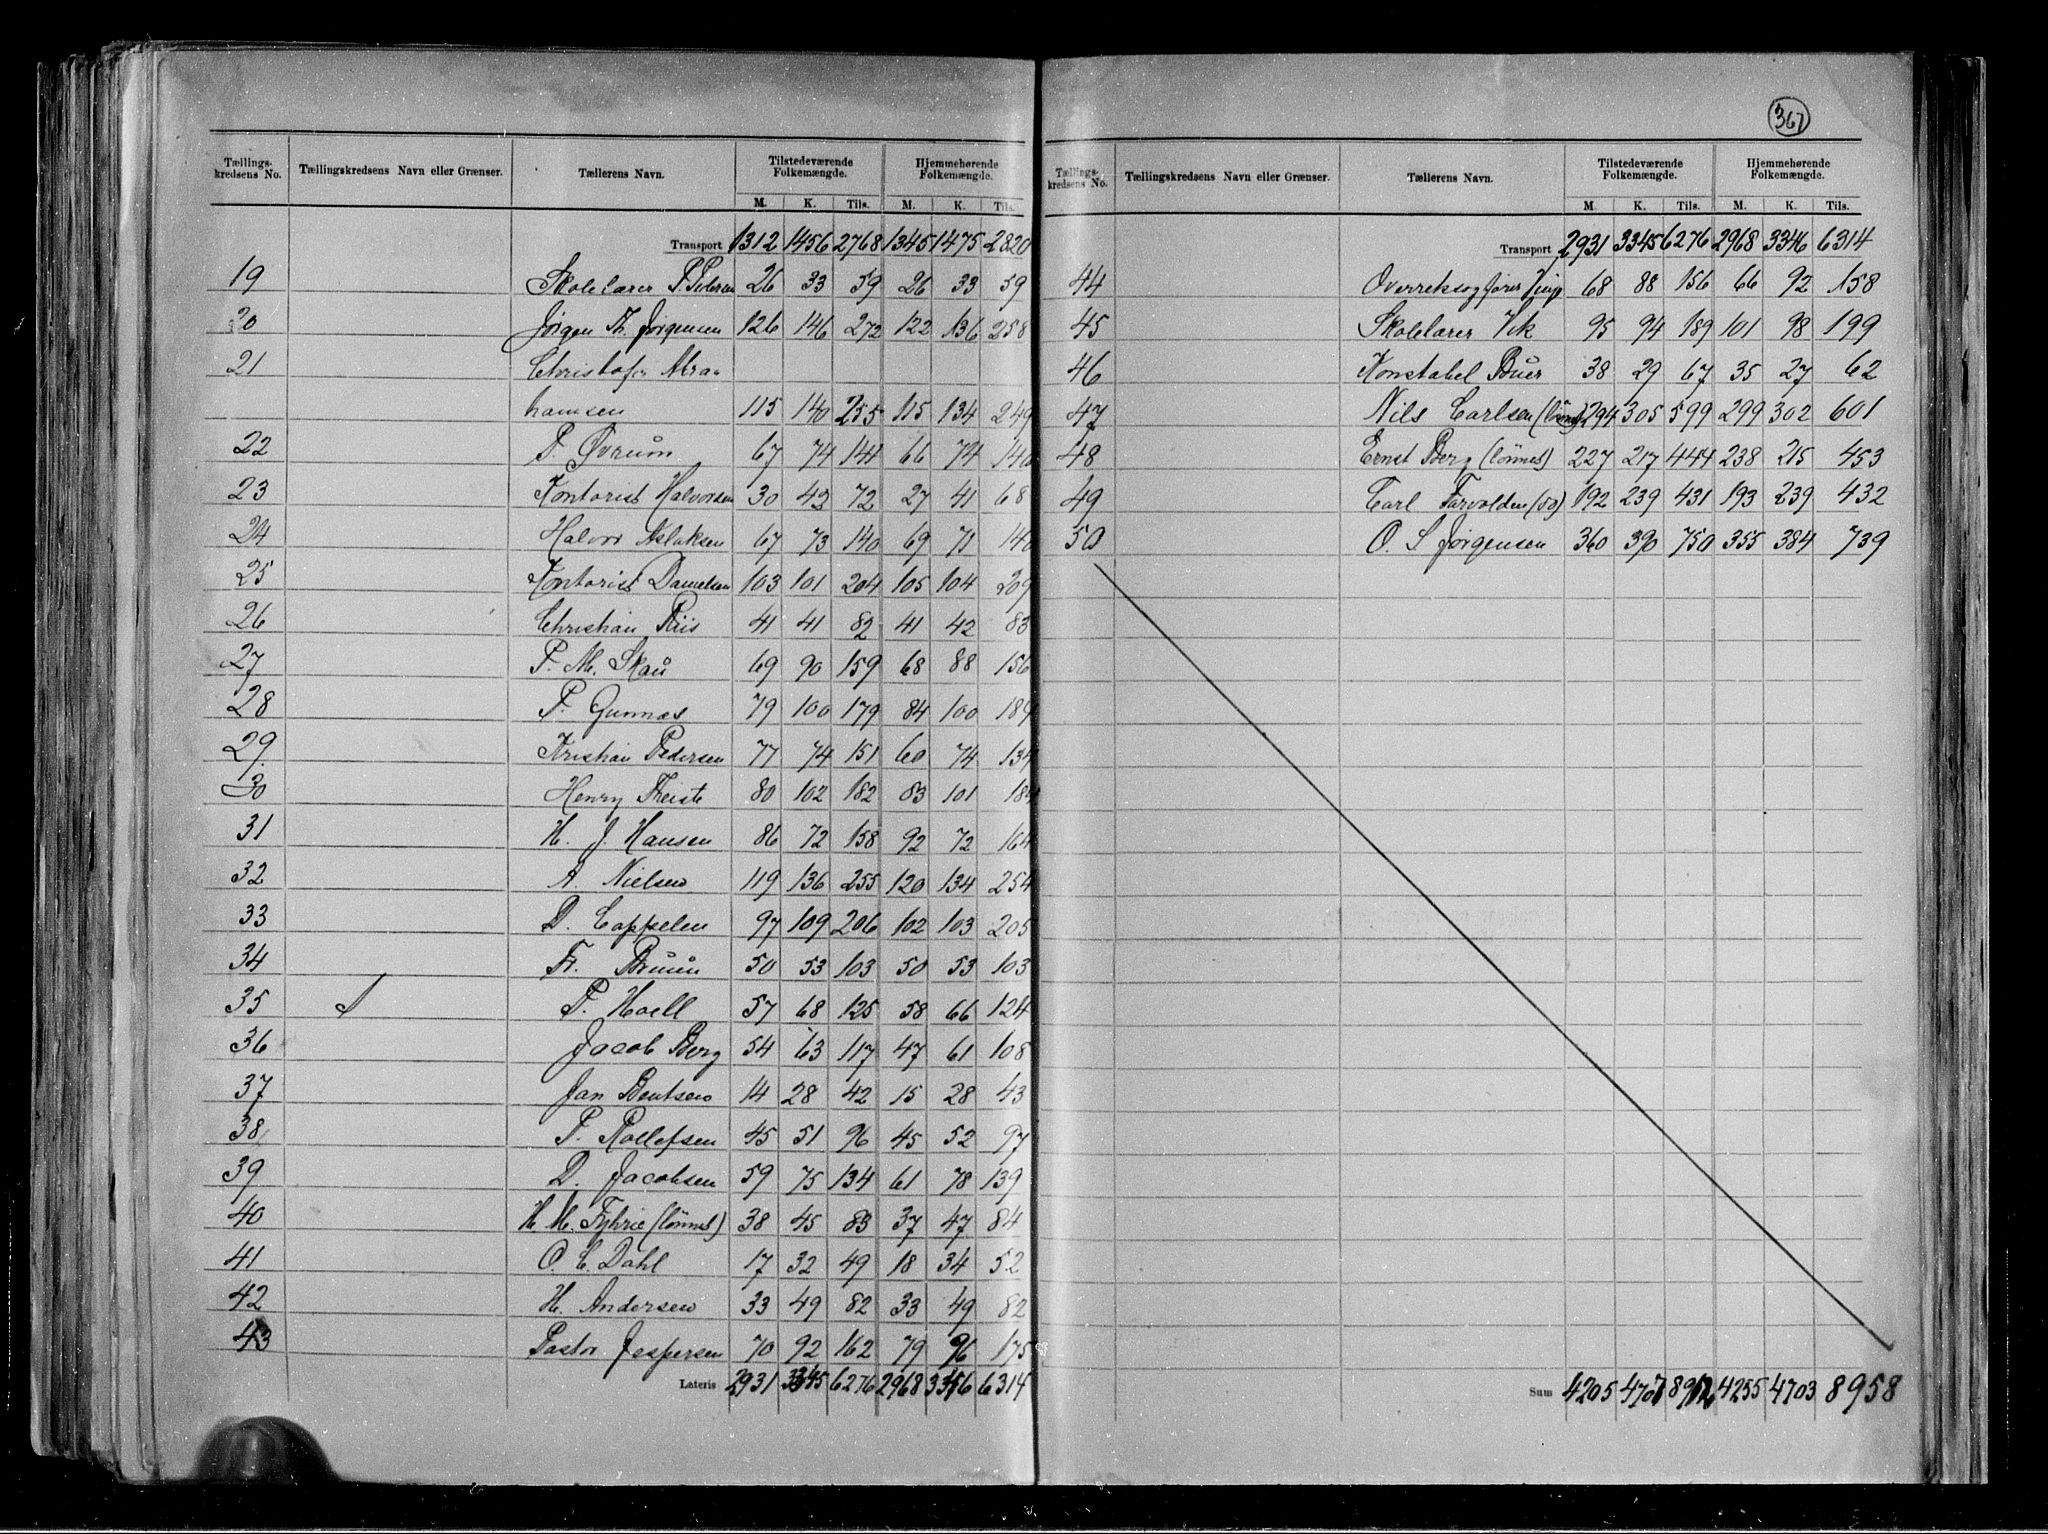 367
Tællings-kredsens No. Tællingskredsens Navn eller Grænser. Tællerens Navn. Tilstedeværende Folkemængde. Hjemmehørende Folkemængde.
M. K. Tils. M. K. Tils.
Transport 1312 1456 2768 1345 1475 2820
19 Skolelærer P Pedersen 26 33 59 26 33 59
20 Jørgen Th. Jørgensen 126 146 272 122 136 258
21 Christofer Abra-
hamsen 115 140 255 115 134 249
22 P. Øvrum 67 74 141 66 74 140
23 Kontorist Halvorsen 30 42 72 27 41 68
24 Halvor Aslaksen 67 73 140 69 71 140
25 Kontorist Danielsen 103 101 204 105 104 209
26 Christian Riis 41 41 82 41 42 83
27 P. M. Skau 69 90 159 68 88 156
28 P. Gunnæs 79 100 179 84 100 184
29. Kristian Pedersen 77 74 151 60 74 134
30 Henry 80 102 182 83 101 184
31 H. J. Hansen 86 72 158 92 72 164
32 A. Nielsen 119 136 255 120 134 254
33 D. Cappelen 97 109 206 102 103 205
34 Fr. Bruun 50 53 103 50 53 103
35 P. Hoell 57 68 125 58 66 124
36 Jacob Berg 54 63 117 47 61 108
37 Jan Bentsen 14 28 42 15 28 43
38 P. Rollefsen 45 51 96 45 52 97
39 D. Jacobsen 59 75 134 61 78 139
40 H. M. (lønnet) 38 45 83 37 47 84
41 O. C. Dahl 17 32 49 18 34 52
42 H. Andersen 33 49 82 33 49 82
43 Pastor Jespersen 70 92 162 79 96 175
Lateris 2931 3345 6276 2968 3346 6314
Tællings-kredsens No. Tællingskredsens Navn eller Grænser. Tællerens Navn. Tilstedeværende Folkemængde. Hjemmehørende Folkemængde.
M. K. Tils. M. K. Tils.
Transport 2931 3345 6276 2968 3346 6314
44 68 88 156 66 92 158
45 Skolelærer Vik 95 94 189 101 98 199
46 Konstabel Buer 38 29 67 35 27 62
47 Nils Carlsen (lønnet) 294 305 599 299 302 601
48 Ernst Berg (lønnet) 227 217 444 238 215 453
49 Carl Farvolden (do) 192 239 431 193 239 432
50 O. S Jørgensen 360 390 750 355 384 739
Sum 4205 4707 8912 4255 4703 8958